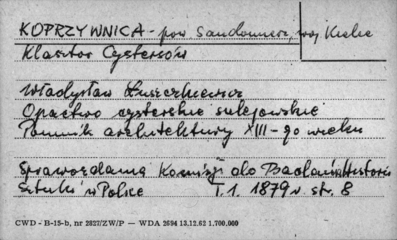 KOPRZYWNICA - pow Sandomierz, woj Kielce
Klasztor Cystersów
Władysław Łuszczkiewicz
Opactwo cysterskie sulejowskie
Pomnik architektury XIII-go wieku
Sprawozdania Komisji do Badania Historii
Sztuki w Polsce T.1. 1879 r. str. 8
CWD - B-15-b, nr 2827/ZW/P — WDA 2694 13.12.62 1.700.000